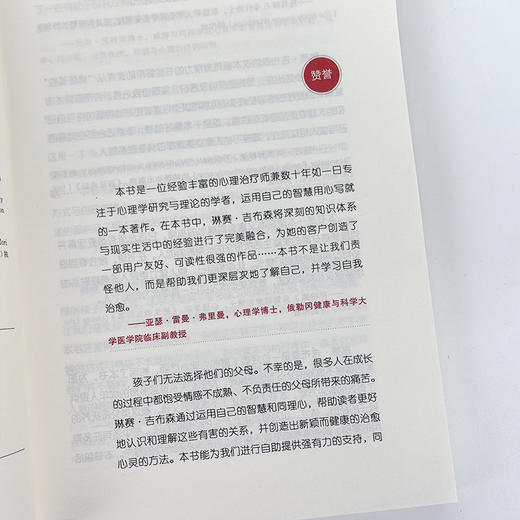 赞誉
本书是一位经验丰富的心理治疗师兼数十年如一日专
注于心理学研究与理论的学者，运用自己的智慧用心写就
的一本著作。在本书中，琳赛·吉布森将深刻的知识体系
与现实生活中的经验进行了完美融合，为她的客户创造了
一部用户友好、可读性很强的作品……本书不是让我们责
怪他人，而是帮助我们更深层次地了解自己，并学习自我
治愈。
——亚瑟·雷曼·弗里曼，心理学博士，俄勒冈健康与科学大
学医学院临床副教授
孩子们无法选择他们的父母。不幸的是，很多人在成长
的过程中都饱受情感不成熟、不负责任的父母所带来的痛苦。
琳赛·吉布森通过运用自己的智慧和同理心，帮助读者更好
地认识和理解这些有害的关系，并创造出新颖而健康的治愈
心灵的方法。本书能为我们进行自助提供强有力的支持，同